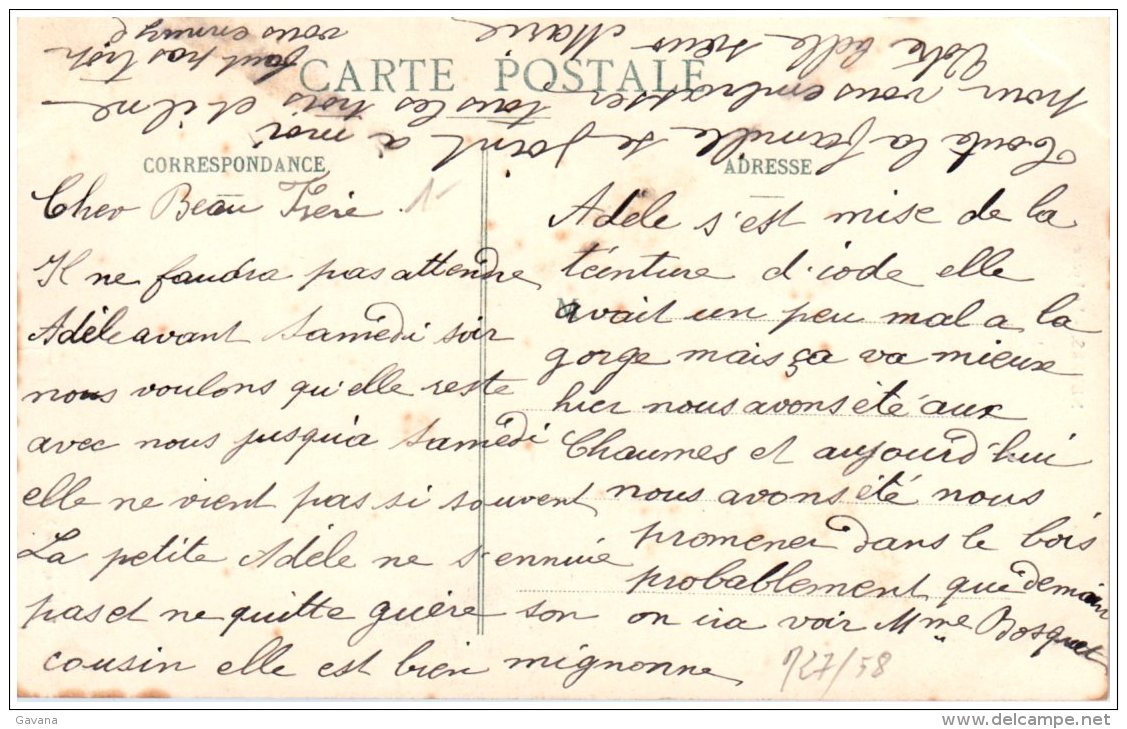 CARTE POSTALE
CORRESPONDANCE
Cher Beau Frère
Il ne faudra pas attendre
Adèle avant Samédi soir
nous voulons qu'elle reste
avec nous jusqu'à Samédi
elle ne vient pas si souvent
La petite Adèle ne s'ennuie
pas et ne quitte guère son
cousin elle est bien mignonne
ADRESSE
Adèle s'est mise de la
teinture d'iode elle
avait un peu mal a la
gorge mais ça va mieux
hier nous avons été aux
Chaumes et aujourd'hui
nous avons été nous
promener dans le bois
probablement que demain
on ira voir Mme Bosquet
Toute la famille se joint à moi
pour vous embrasser tous les trois et il ne
faut pas trop
vous ennuyé
Votre belle sœur Marie
127/58
Gavana
delcampe.net